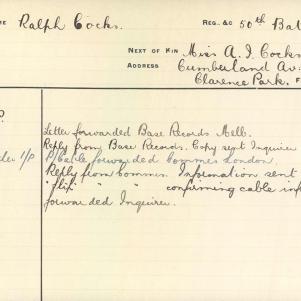 ME Ralph Cocks. REG. &C 50th Bat
NEXT OF KIN Miss A. I. Cocks
ADDRESS Cumberland Av
Clarence Park.
Letter forwarded Base Records Melb.
Reply from Base Records. Copy sent Inquirer
P/Cable forwarded Commrs London.
Reply from Commrs. Information sent
" " " " confirming cable inf
forwarded Inquirer.